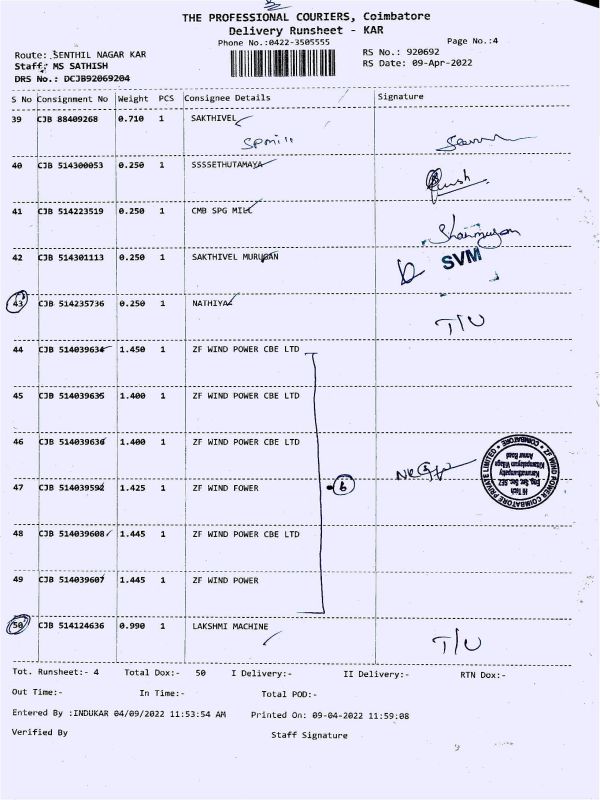 THE PROFESSIONAL COURIERS, Coimbatore
Delivery Runsheet - KAR
Phone No.:0422-3505555
Page No.:4
Route: SENTHIL NAGAR KAR
RS No.: 920692
Staff: MS SATHISH
RS Date: 09-Apr-2022
DRS No.: DCJB92069204
S No Consignment No Weight PCS Consignee Details Signature
39 CJB 88409268 0.710 1 SAKTHIVEL
SPmill
40 CJB 514300053 0.250 1 SSSSETHUTAMAYA
41 CJB 514223519 0.250 1 CMB SPG MILL
Shanmugam
42 CJB 514301113 0.250 1 SAKTHIVEL MURUGAN
SVM
43 CJB 514235736 0.250 1 NATHIYA
T/U
44 CJB 514039634 1.450 1 ZF WIND POWER CBE LTD
45 CJB 514039635 1.400 1 ZF WIND POWER CBE LTD
46 CJB 514039636 1.400 1 ZF WIND POWER CBE LTD
ZF WIND POWER COIMBATORE PRIVATE LIMITED
Hi Tech
Eng. Sec. SEZ
Karumathampatty
Kittampalayam Village
Annur Road
COIMBATORE
47 CJB 514039592 1.425 1 ZF WIND FOWER
6
48 CJB 514039608 1.445 1 ZF WIND POWER CBE LTD
49 CJB 514039607 1.445 1 ZF WIND POWER
50 CJB 514124636 0.990 1 LAKSHMI MACHINE
T/U
Tot. Runsheet:- 4 Total Dox:- 50 I Delivery:- II Delivery:- RTN Dox:-
Out Time:- In Time:- Total POD:-
Entered By :INDUKAR 04/09/2022 11:53:54 AM Printed On: 09-04-2022 11:59:08
Verified By Staff Signature